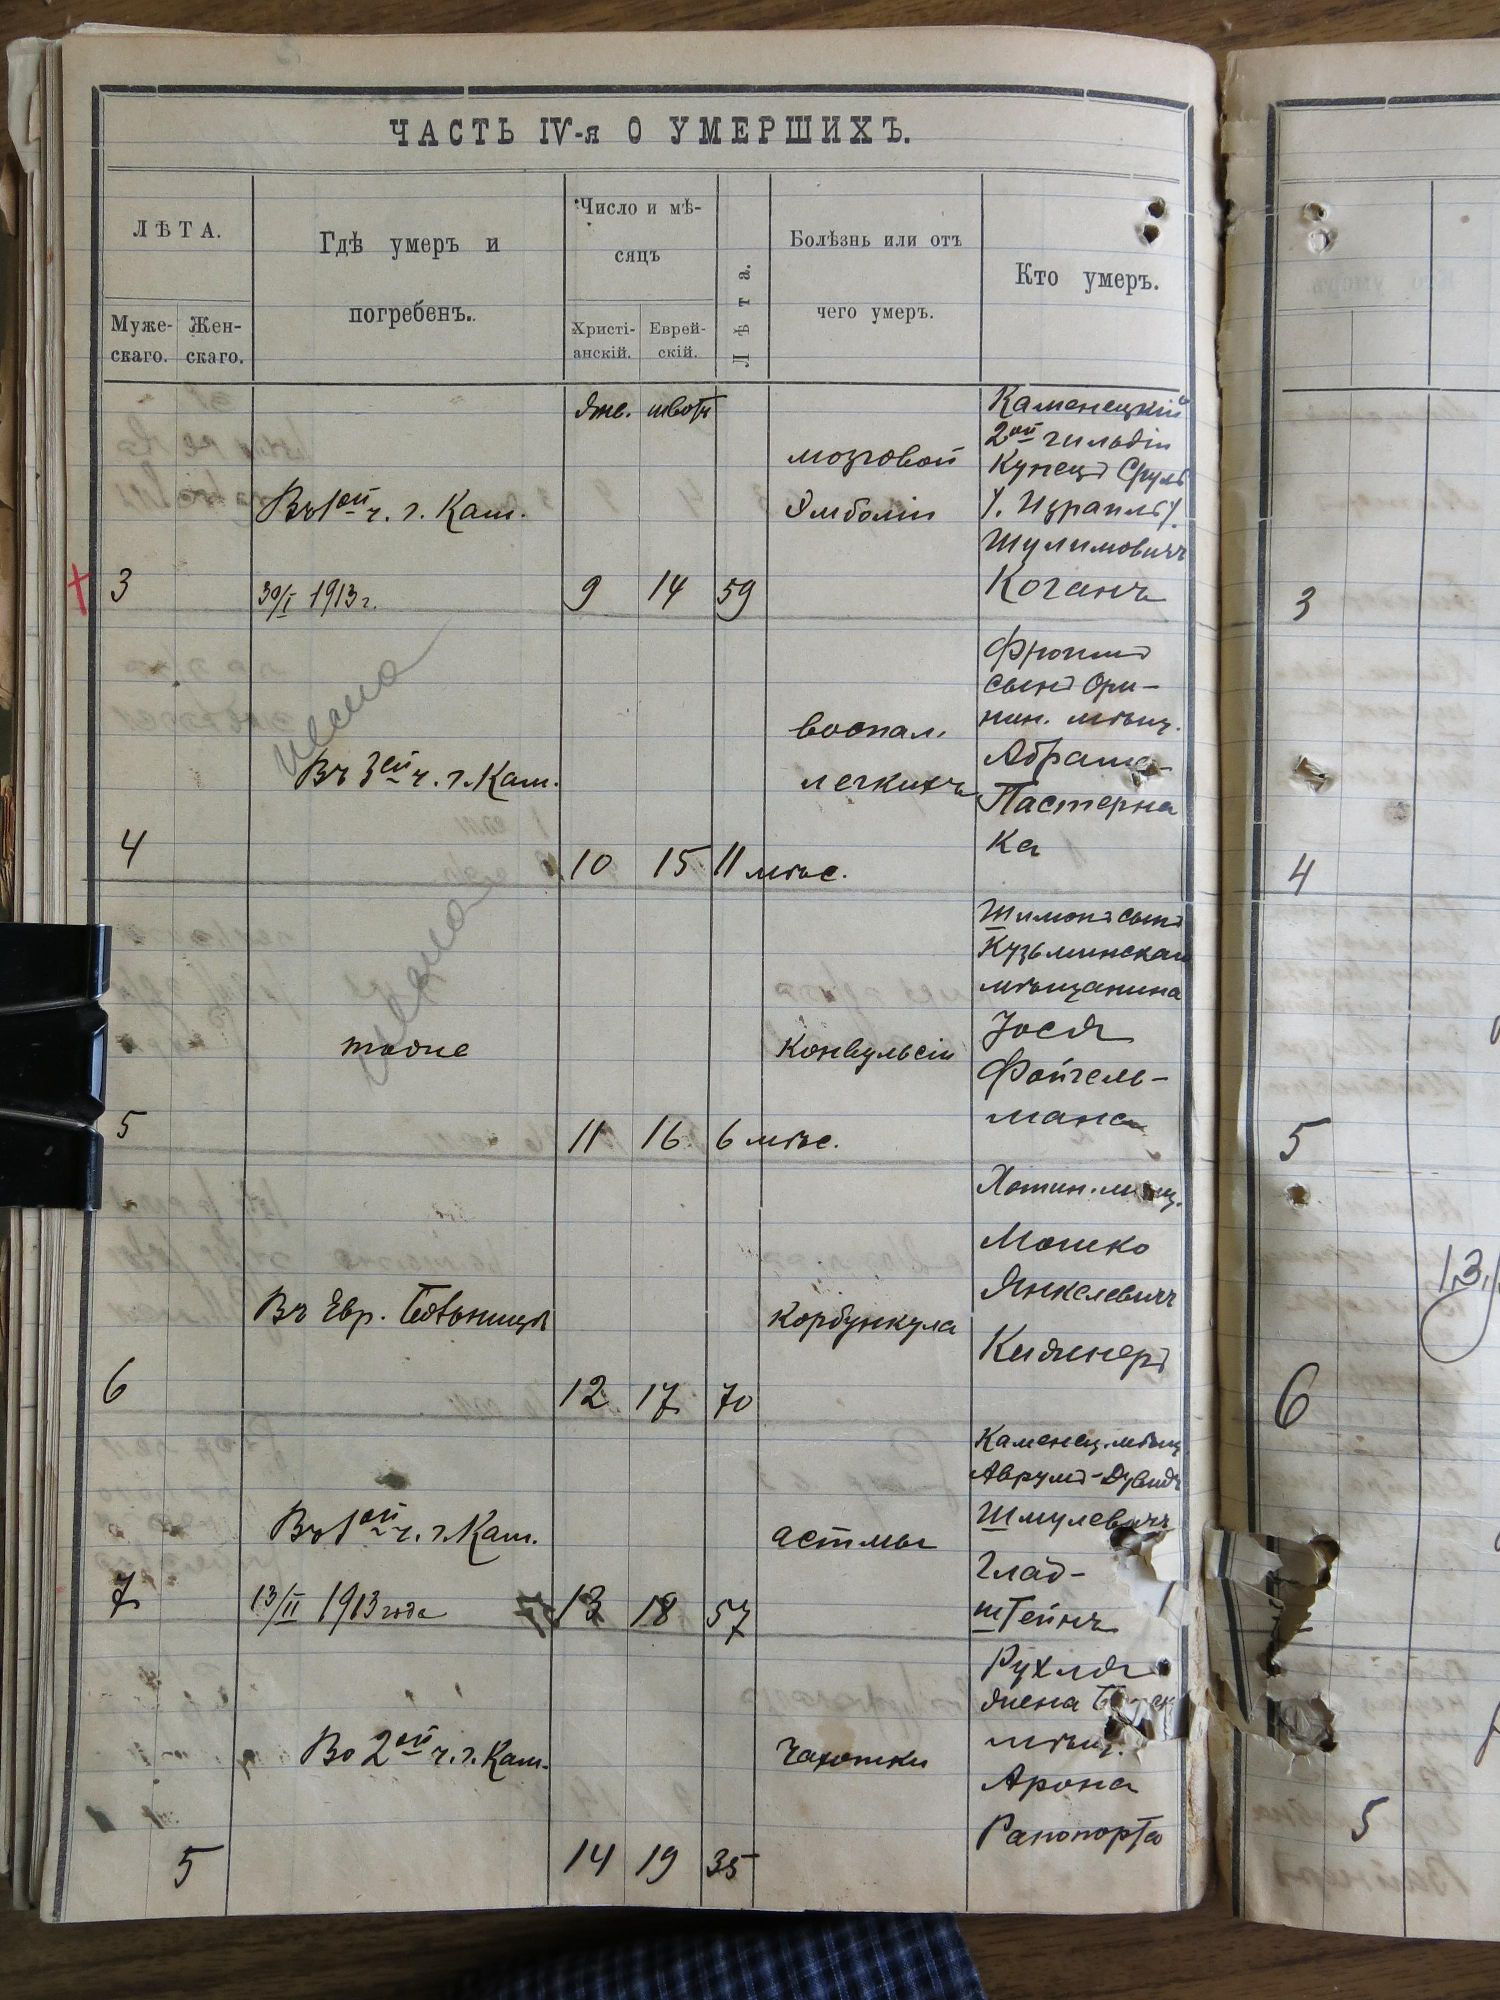 ЧАСТЬ IV-я О УМЕРШИХЪ.
ЛѢТА.
Муже-
скаго.
Жен-
скаго.
Гдѣ умеръ и
погребенъ.
Число и мѣ-
сяцъ
Христі-
анскій.
Еврей-
скій.
Лѣта.
Болѣзнь или отъ
чего умеръ.
Кто умеръ.
3
Въ 1ой ч. г. Кам.
30/I 1913 г.
9
14
59
мозговой
Эмболіи
Каменецкій
2ой гильдіи
Купецъ Сруль
/. Израиль /.
Шулимовичъ
Коганъ
4
Въ 3ей ч. г. Кам.
10
15
11 мѣс.
воспал.
легкихъ
Фроимъ
сынъ Ори-
нин. мѣщ.
Абрама
Пастерна
ка
5
тоже
11
16
6 мѣс.
Конвульсіи
Шимонъ сынъ
Кузьминскаго
мѣщанина
Іося
Фойгель-
мана
6
Въ Евр. Больницѣ
12
17
70
Корбункула
Хотин. мѣщ.
Мошко
Янкелевичъ
7
Въ 1ой ч. г. Кам.
13/II 1913 года
13
18
57
астмы
Каменец. мѣщ
Аврумъ-Дувидъ
Шмулевичъ
Глад-
штейнъ
5
Во 2ой ч. г. Кам.
14
19
35
Чахотки
Рухля
жена
мѣщ.
Арона
Рапопорта
3
4
5
6
5